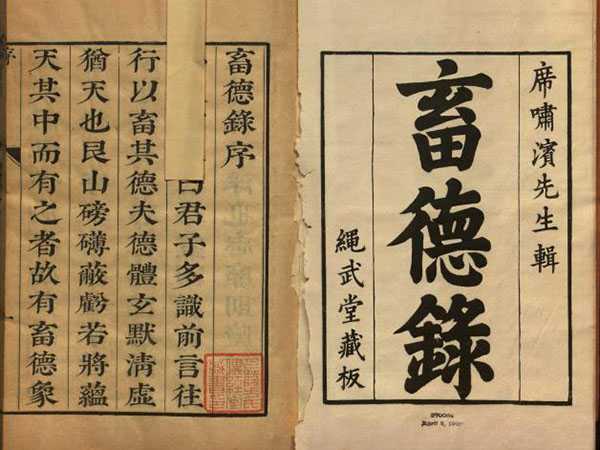 席嘯濱先生輯
畜德錄
繩武堂藏板
畜德錄序
曰君子多識前言往
行以畜其德夫德體玄默清虛
猶天也艮山磅礴蔽虧若將蘊
天其中而有之者故有畜德象